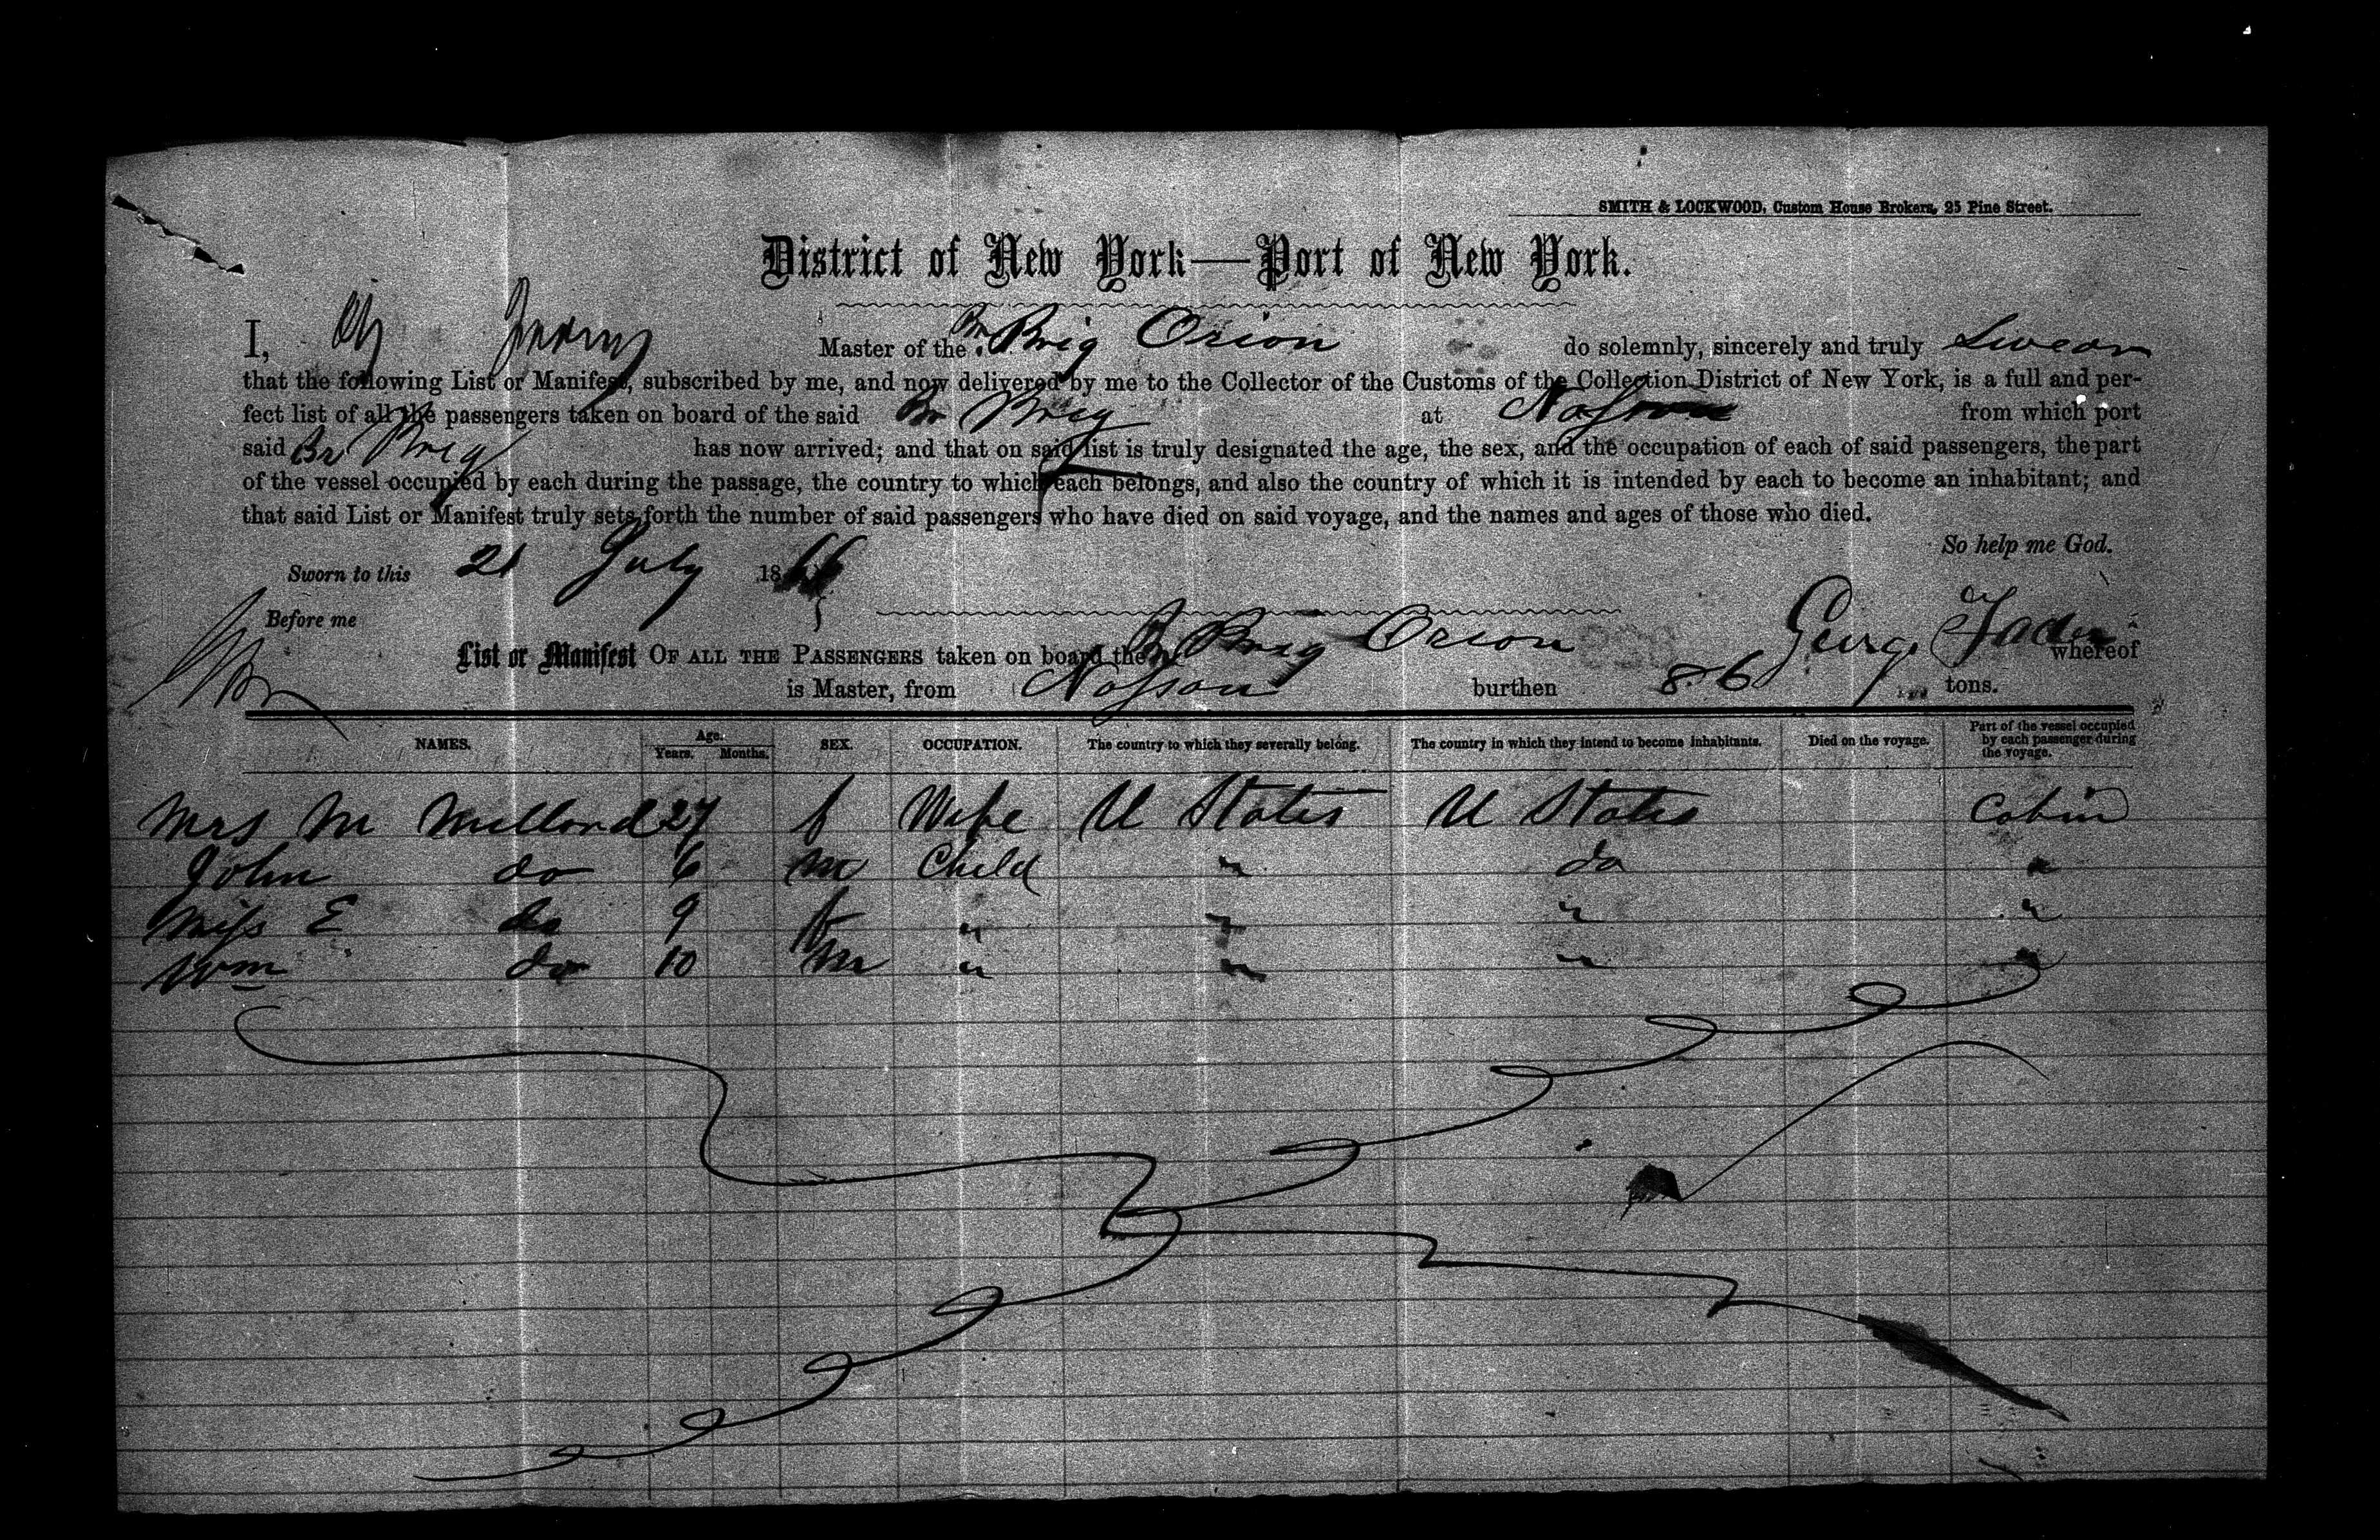 SMITH & LOCKWOOD, Custom House Brokers, 25 Pine Street.
District of New York—Port of New York.
I, Master of the Br Brig Orion do solemnly, sincerely and truly Swear
that the following List or Manifest, subscribed by me, and now delivered by me to the Collector of the Customs of the Collection District of New York, is a full and per-
fect list of all the passengers taken on board of the said Br Brig at Nassau from which port
said Br Brig has now arrived; and that on said list is truly designated the age, the sex, and the occupation of each of said passengers, the part
of the vessel occupied by each during the passage, the country to which each belongs, and also the country of which it is intended by each to become an inhabitant; and
that said List or Manifest truly sets forth the number of said passengers who have died on said voyage, and the names and ages of those who died.
So help me God.
Sworn to this 21 July 1866
Before me
List or Manifest OF ALL THE PASSENGERS taken on board the Br Brig Orion George whereof
is Master, from Nassau burthen 86 tons.
NAMES. Age. Years. Months. SEX. OCCUPATION. The country to which they severally belong. The country in which they intend to become inhabitants. Died on the voyage. Part of the vessel occupied by each passenger during the voyage.
Mrs M Millard 27 f Wife U States U States Cabin
John do 6 m Child " do "
Miss E do 9 f " " " "
Wm do 10 m " " " "